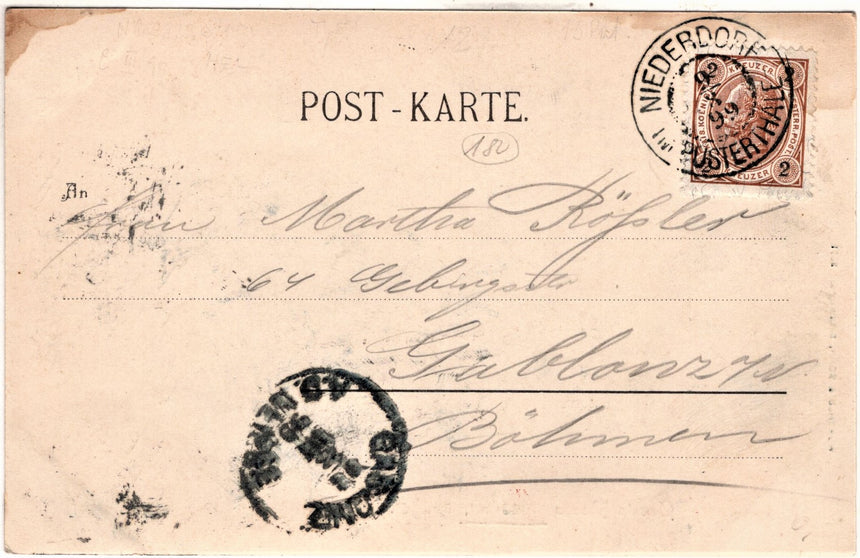 POST-KARTE.
NIEDERDORF
IM PUSTERTHALE
99
KREUZER
2
180
An
Frau Martha Rößler
64 Gebirgsstr.
Gablonz a/N
Böhmen
GABLONZ